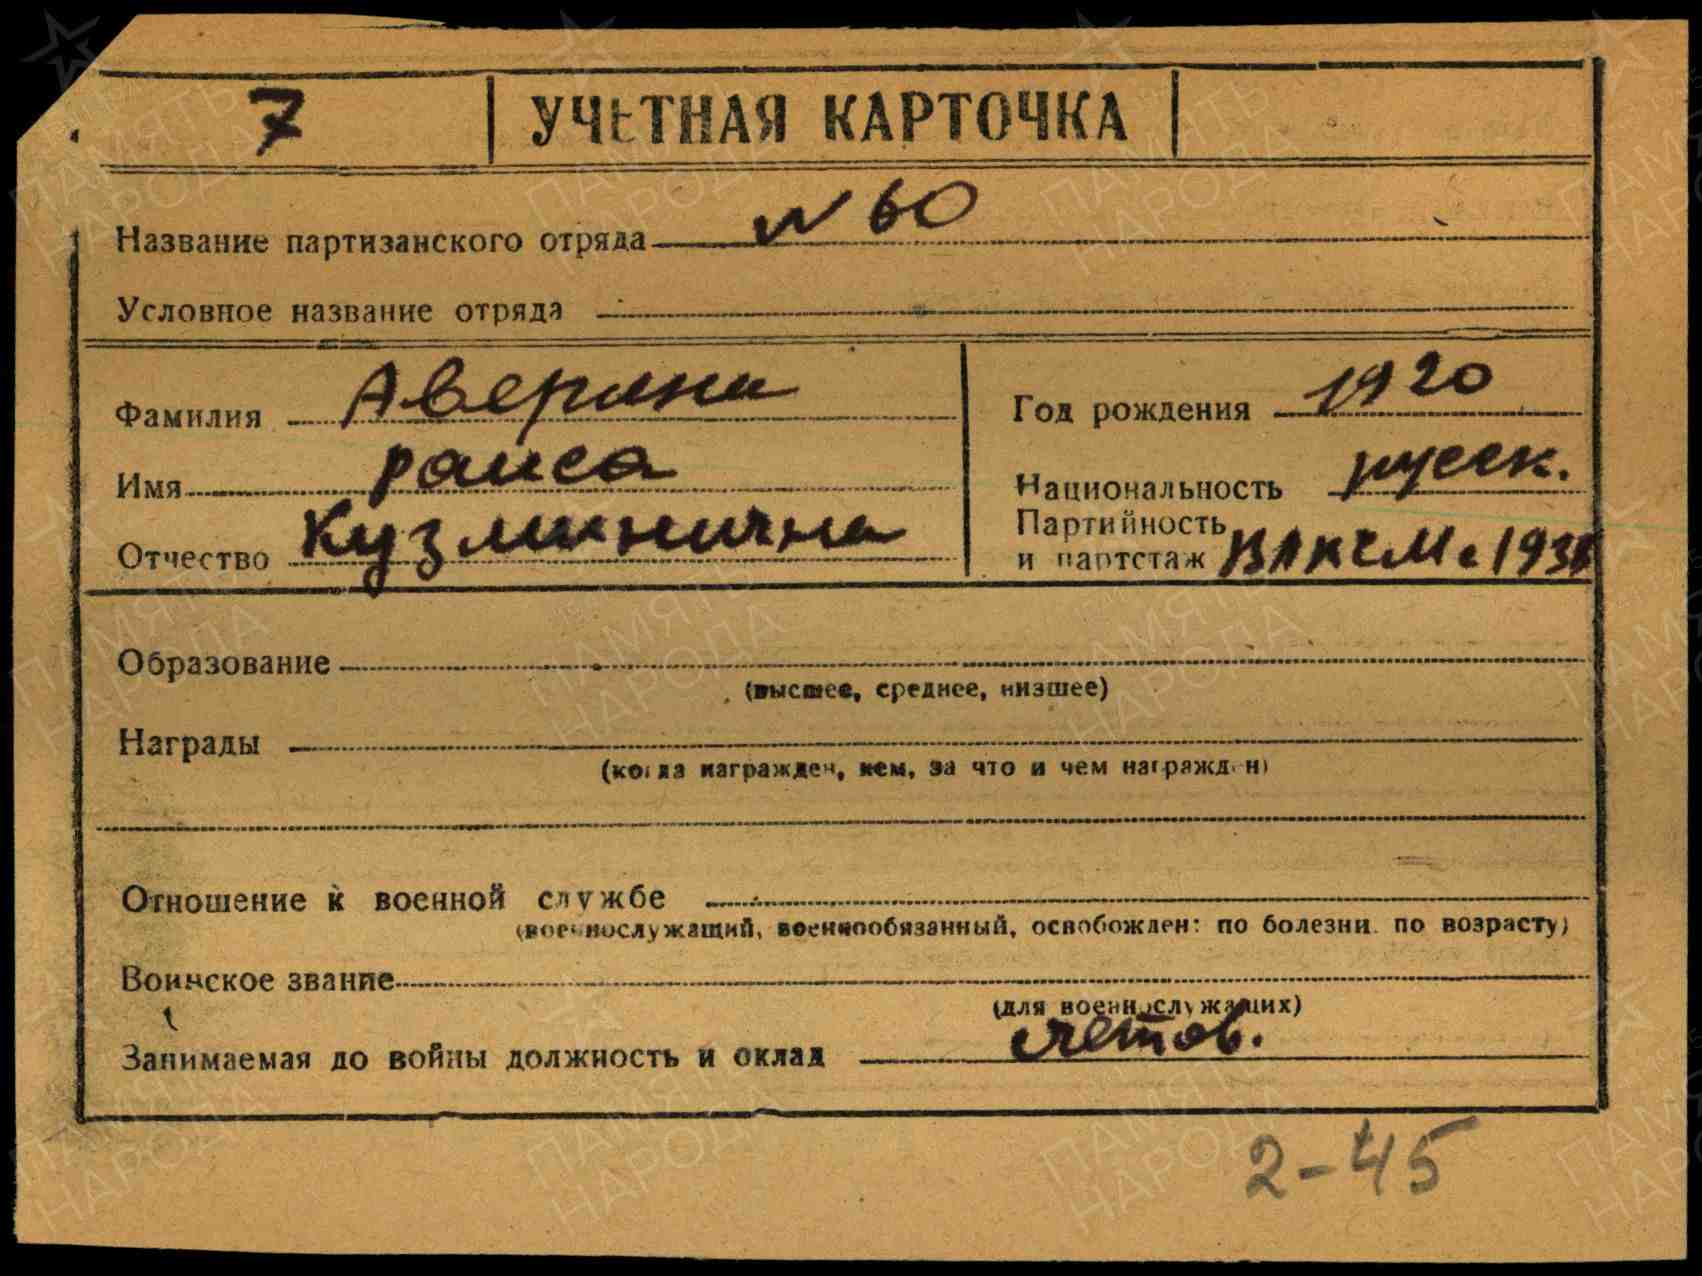 7 УЧЕТНАЯ КАРТОЧКА
Название партизанского отряда N 60
Условное название отряда
Фамилия
Имя раиса
Отчество Кузминична
Год рождения 1920
Национальность русск.
Партийность
и партстаж ВЛКСМ с
Образование
(высшее, среднее, низшее)
Награды
(когда награжден, кем, за что и чем награжден)
Отношение к военной службе
(военнослужащий, военнообязанный, освобожден: по болезни. по возрасту)
Воинское звание
(для военнослужащих)
Занимаемая до войны должность и оклад счетов.
2-45
ПАМЯТЬ
НАРОДА